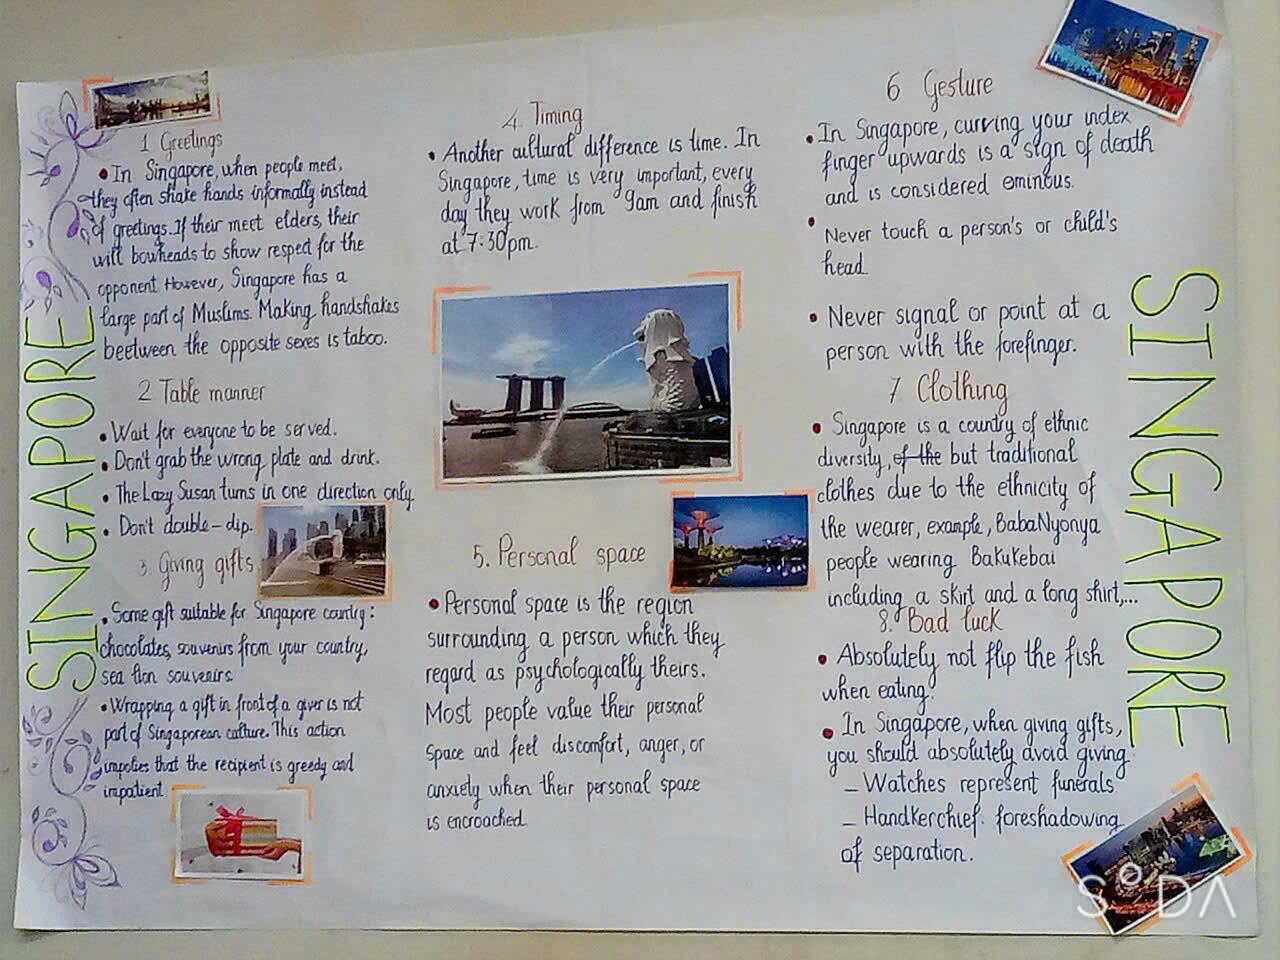 SINGAPORE
1 Greetings
• In Singapore, when people meet,
they often shake hands informally instead
of greetings. If their meet elders, their
will bowheads to show respect for the
opponent However, Singapore has a
large part of Muslims. Making handshakes
beetween the opposite sexes is taboo.
2 Table manner
• Wait for everyone to be served.
• Don't grab the wrong plate and drink.
• The Lazy Susan turns in one direction only.
• Don't double-dip.
3. Giving gifts
• Some gift suitable for Singapore country:
chocolates, souvenirs from your country,
sea lion souvenirs
• Wrapping a gift in front of a giver is not
part of Singaporean culture. This action
implies that the recipient is greedy and
impatient
4. Timing
• Another cultural difference is time. In
Singapore, time is very important, every
day they work from 9am and finish
at 7:30pm.
5. Personal space
• Personal space is the region
surrounding a person which they
regard as psychologically theirs.
Most people value their personal
space and feel discomfort, anger, or
anxiety when their personal space
is encroached
6 Gesture
• In Singapore, curving your index
finger upwards is a sign of death
and is considered ominous.
• Never touch a person's or child's
head.
• Never signal or point at a
person with the forefinger.
7 Clothing
• Singapore is a country of ethnic
diversity, of the but traditional
clothes due to the ethnicity of
the wearer, example, BabaNyonya
people wearing Bakukebai
including a skirt and a long shirt,...
8. Bad luck
• Absolutely not flip the fish
when eating.
• In Singapore, when giving gifts,
you should absolutely avoid giving
– Watches represent funerals
– Handkerchief. foreshadowing
of separation.
SINGAPORE
SODA